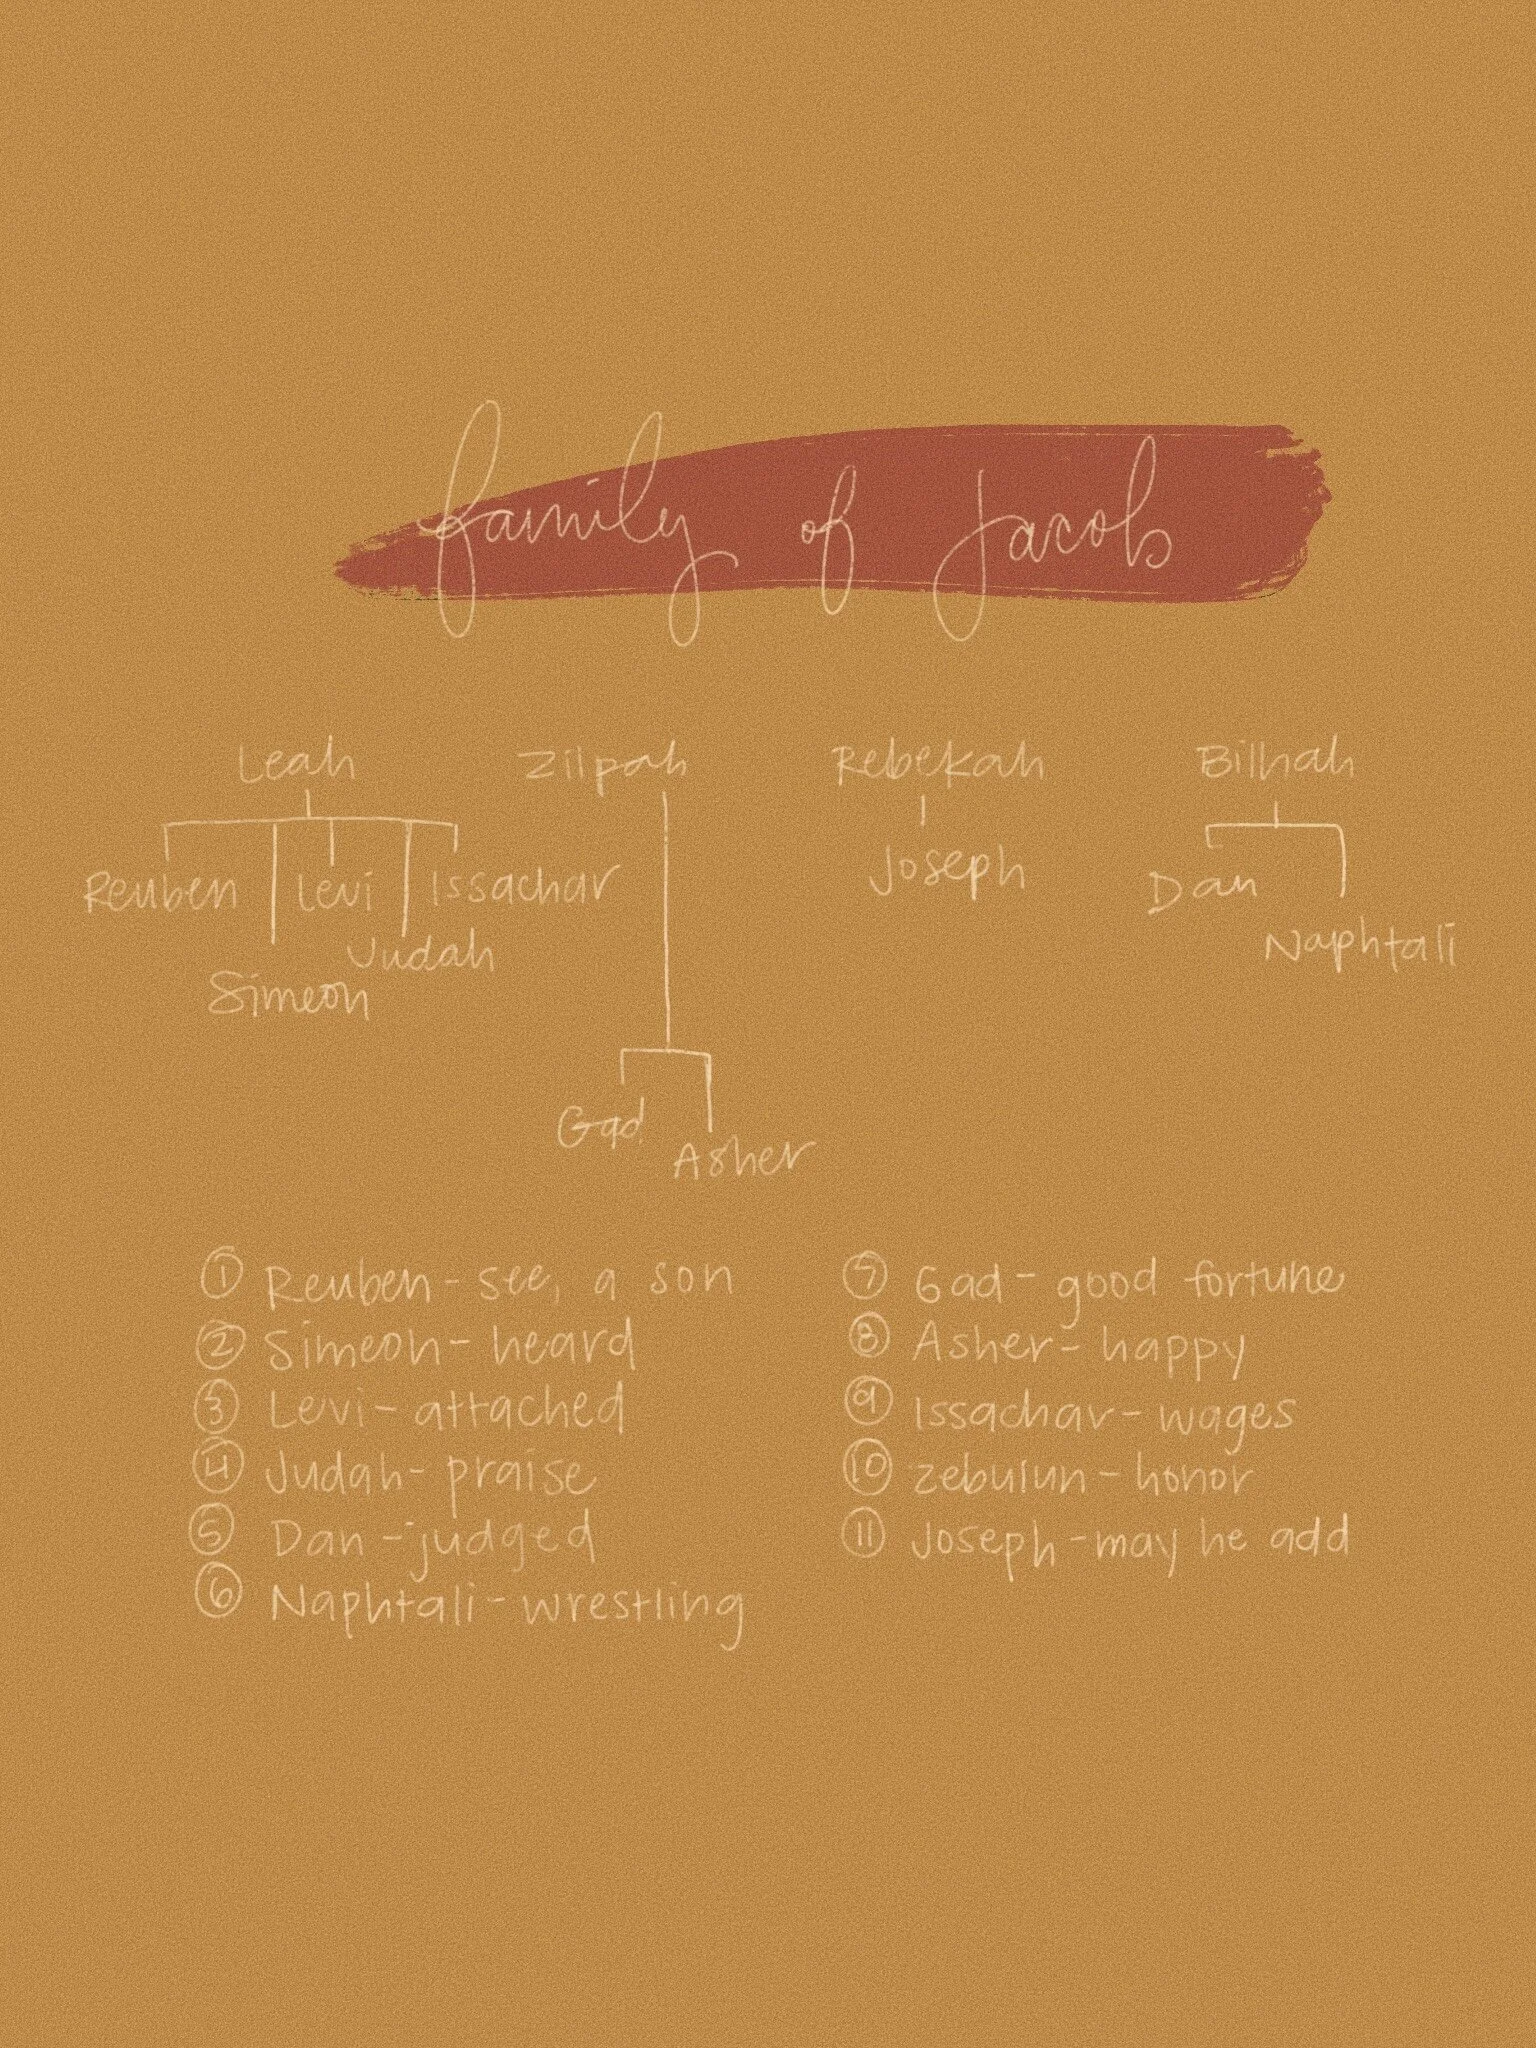 family of Jacob
Leah Zilpah Rebekah Bilhah
Reuben Levi Issachar Joseph Dan
Judah Naphtali
Simeon
Gad
Asher
① Reuben - see, a son
② Simeon - heard
③ Levi - attached
④ Judah - praise
⑤ Dan - judged
⑥ Naphtali - wrestling
⑦ Gad - good fortune
⑧ Asher - happy
⑨ Issachar - wages
⑩ zebulun - honor
⑪ Joseph - may he add